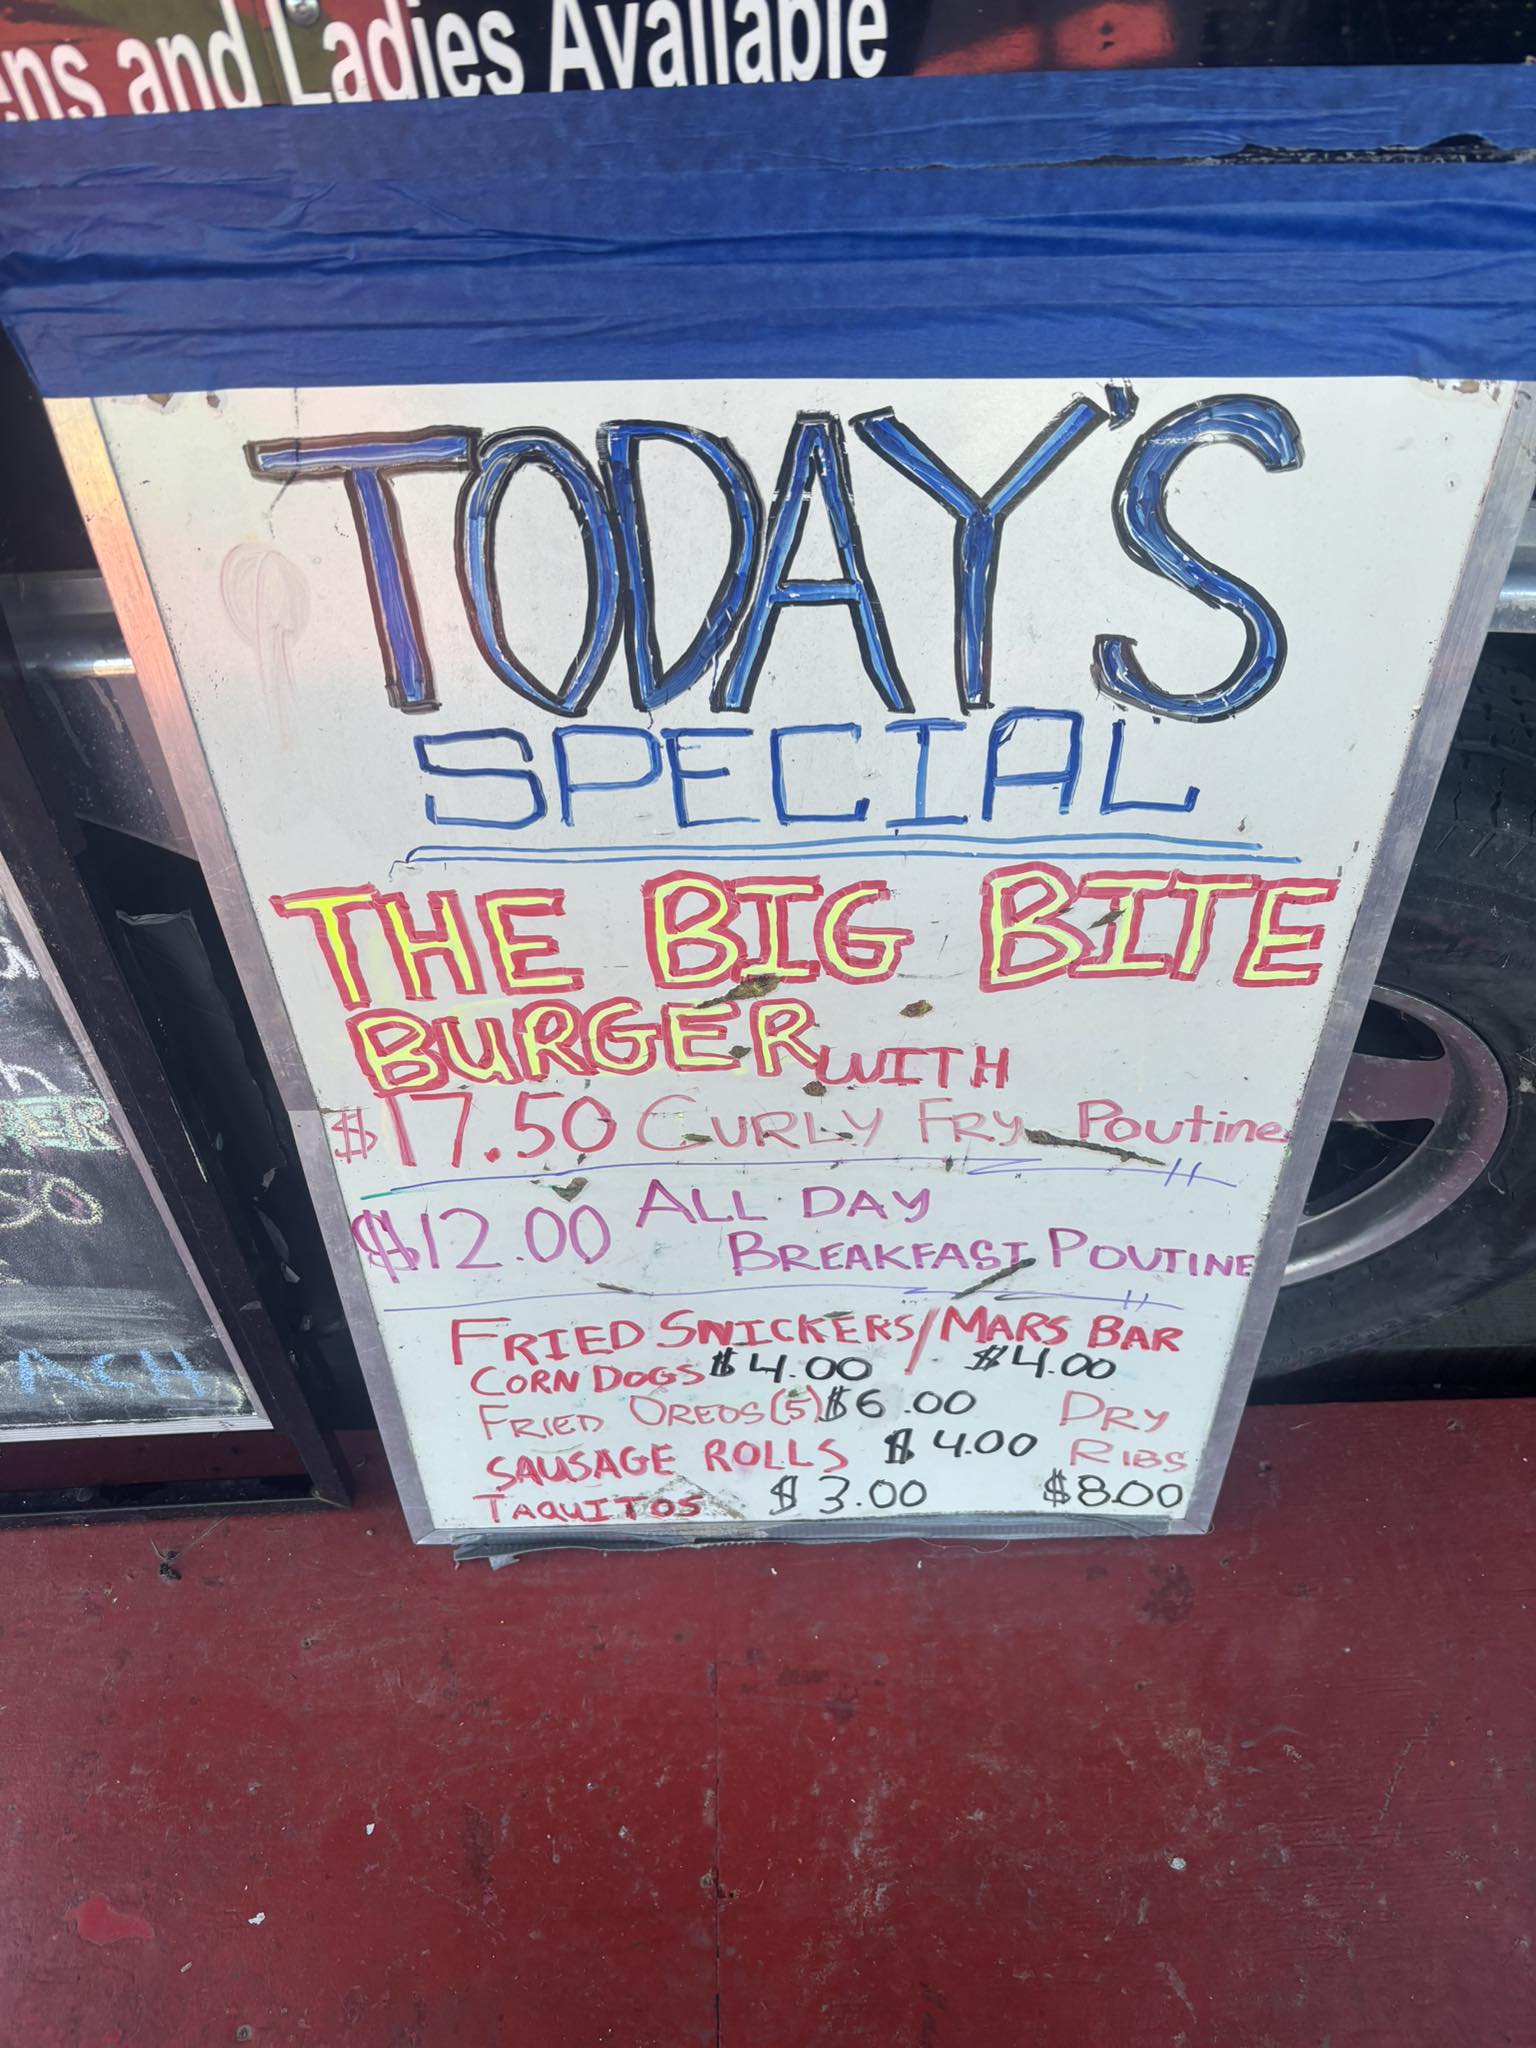 ens and Ladies Available
TODAY'S
SPECIAL
THE BIG BITE
BURGER WITH
$17.50 CURLY FRY Poutine
$12.00 ALL DAY
BREAKFAST POUTINE
FRIED SNICKERS/MARS BAR
CORN DOGS $4.00 / $4.00
FRIED OREOS (5) $6.00 DRY
SAUSAGE ROLLS $4.00 RIBS
TAQUITOS $3.00 $8.00
ACH